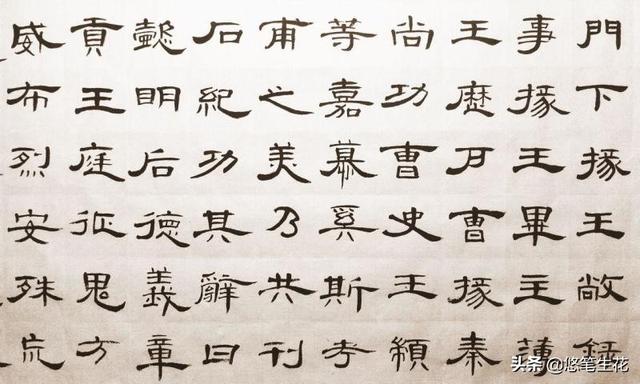 門下掾王敞錄
事掾王畢主薄
王歷戶曹掾秦
尚功曹史王顓
等嘉慕奚斯考
甫之美乃共刊
石紀功其辭曰
懿明后德義章
貢王庭征鬼方
威布烈安殊巟
头条 @悠笔生花